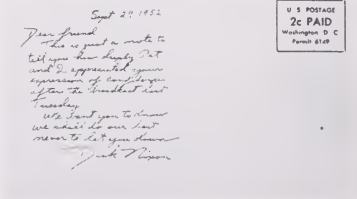 Sept 29 1952
Dear friend
This is just a note to
tell you how deeply Pat
and I appreciated your
expression of confidence
after the broadcast last
Tuesday.
We want you to know
we shall do our best
never to let you down
Dick Nixon
U S POSTAGE
2c PAID
Washington D C
Permit 6149